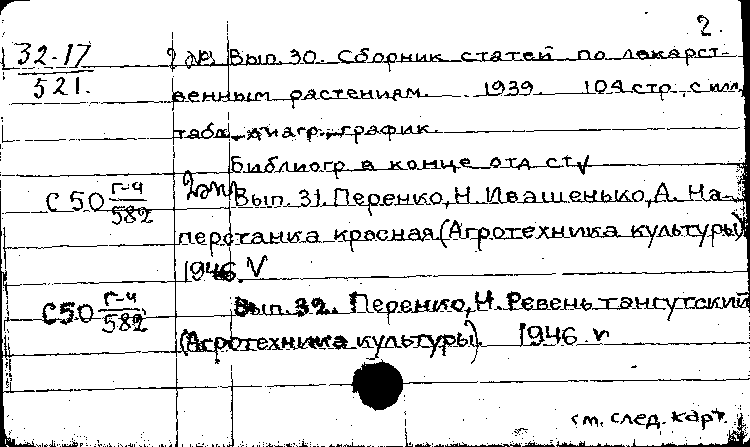 2.
32-17
521.
2 экз. Вып. 30. Сборник статей по лекарст-
венным растениям. 1939. 104 стр., с илл,
табл. диагр. график.
Библиогр в конце отд ст
С 50 г-4/582
2 экз Вып. 31. Перенко, Н. Иващенько, А. На-
перстанка красная (Агротехника культуры)
1946. V
С 50 г-4/582
Вып. 32. Перенко, Н. Ревень тангутский
(Агротехника культуры). 1946. v
см. след. карт.